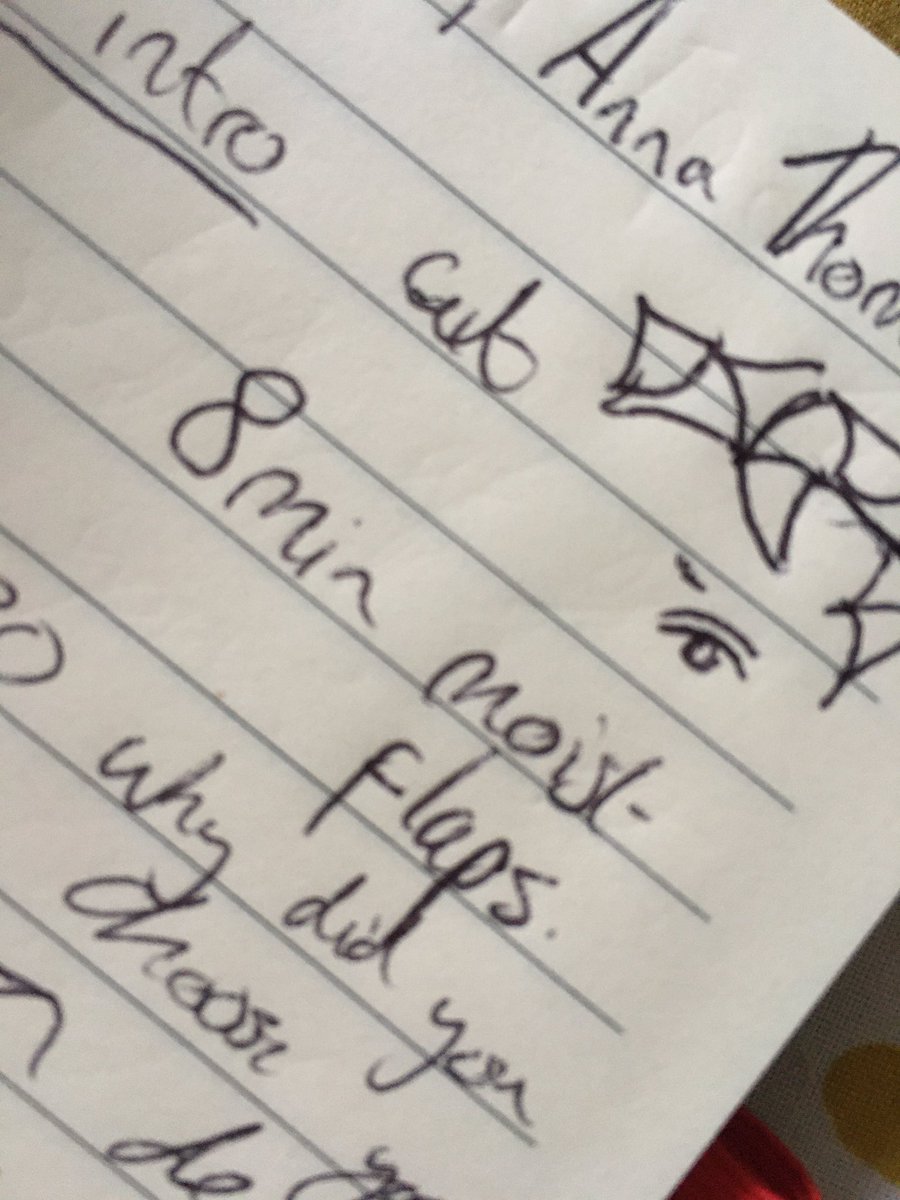 Anna Thom
intro cut
8 min moist
flaps.
why did you
choose
de